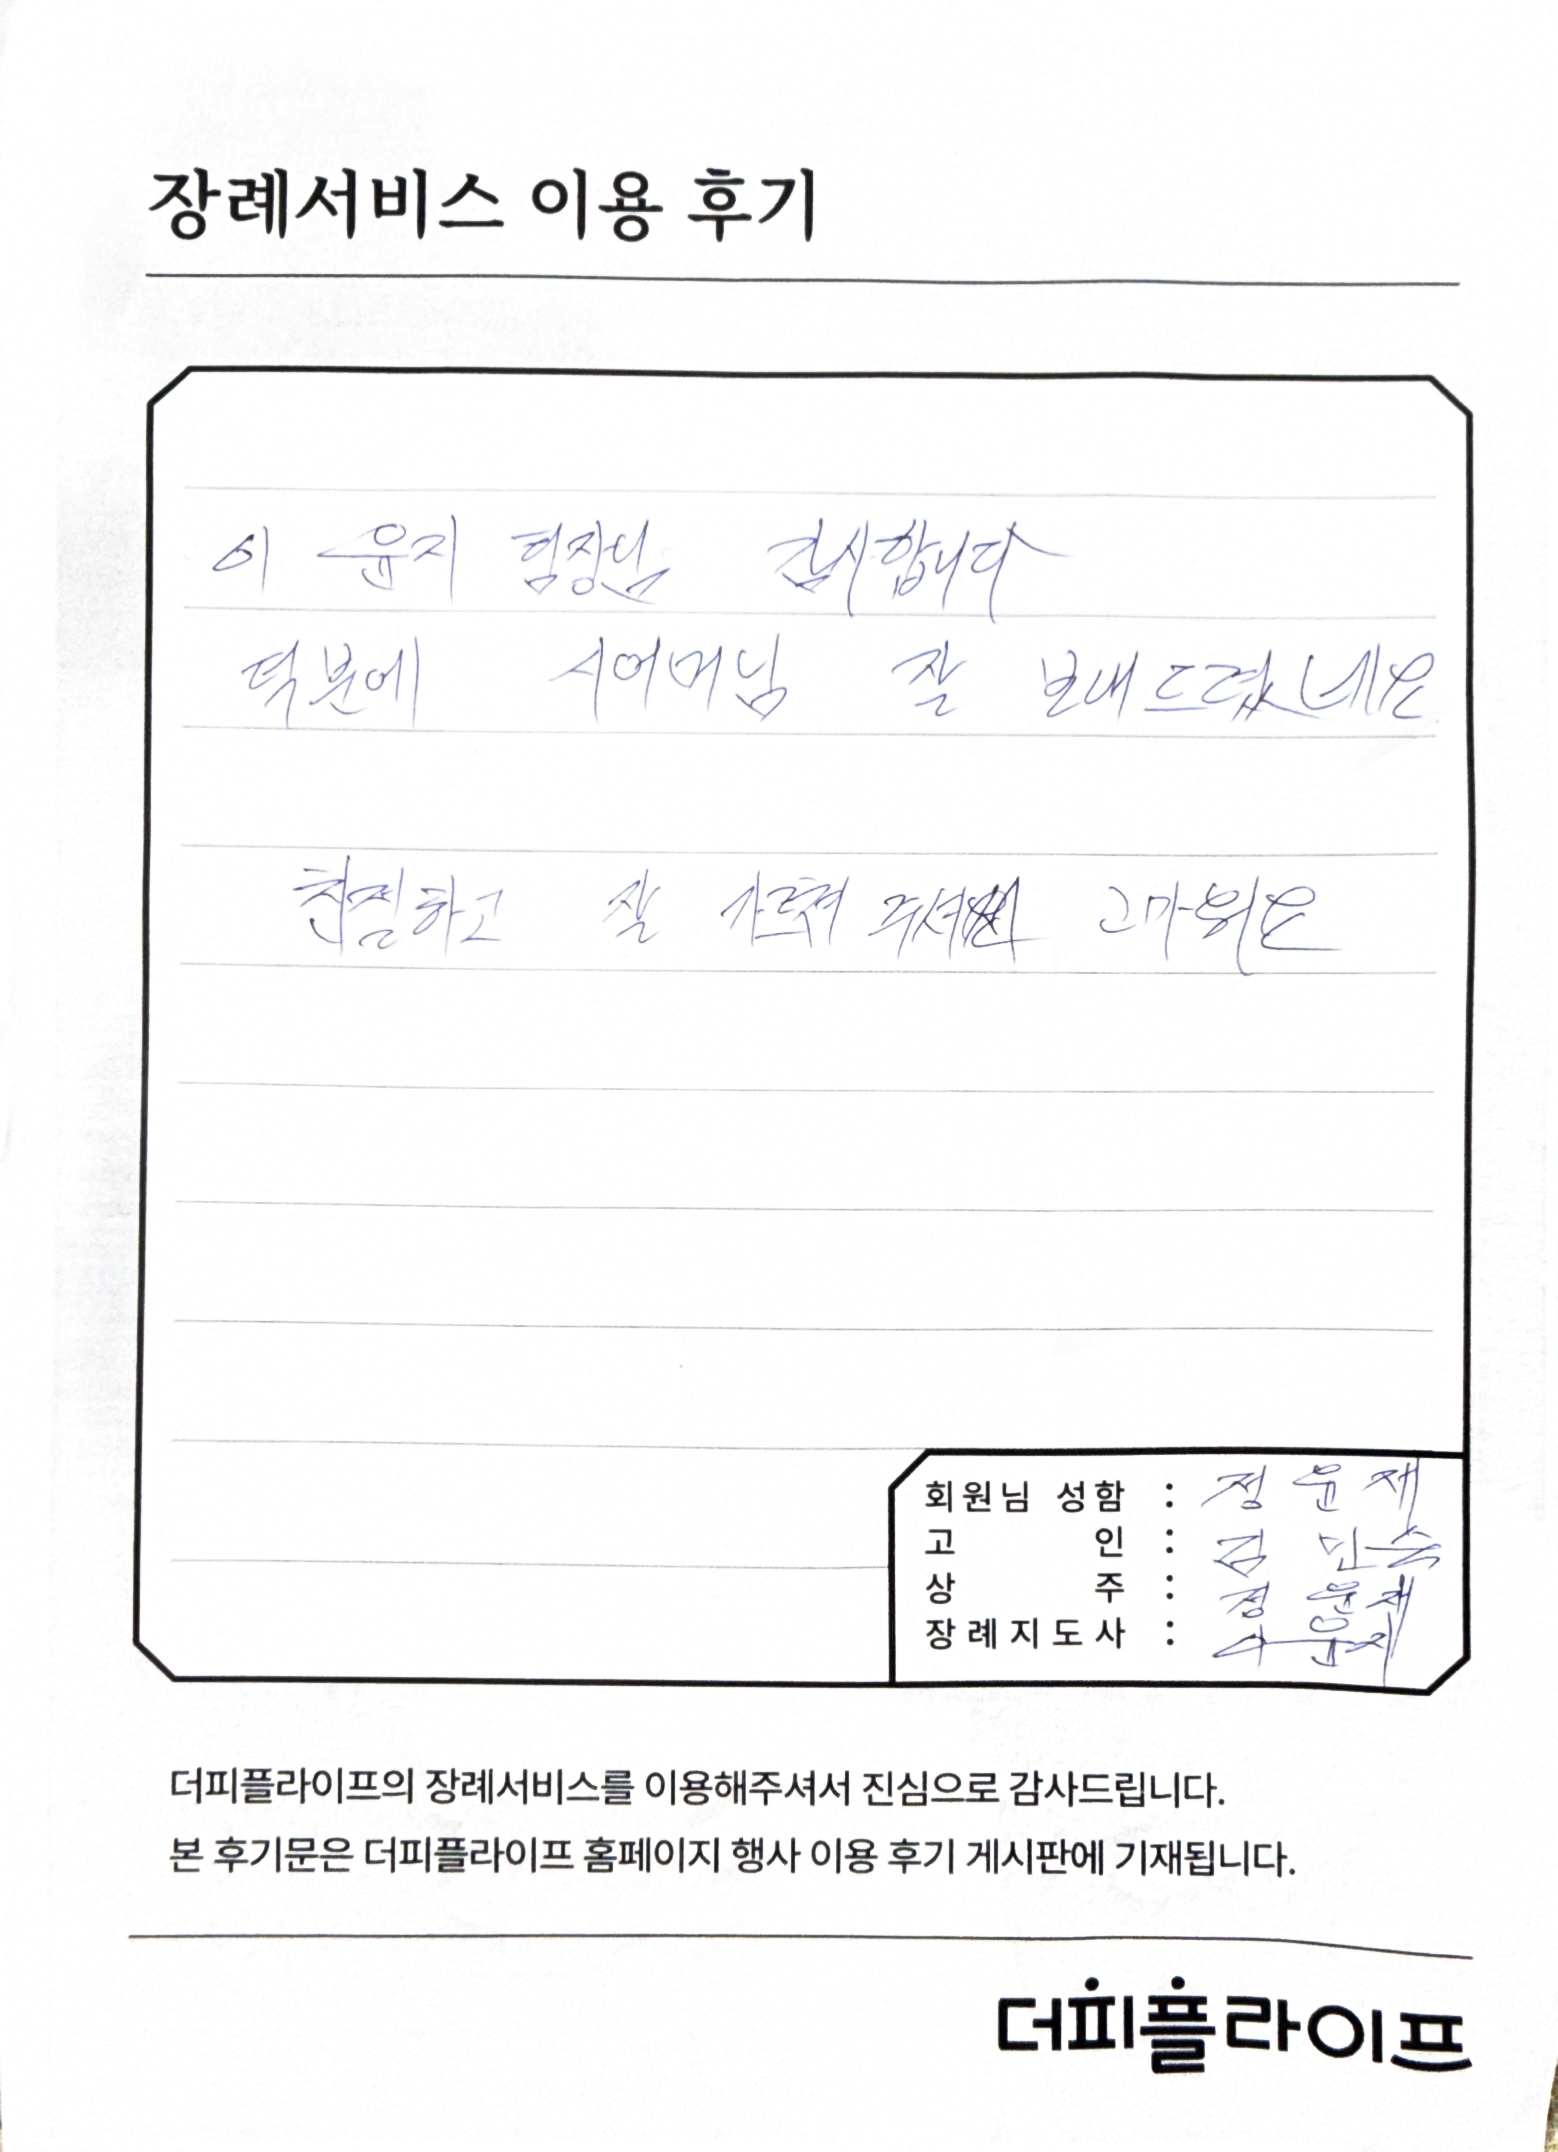 장례서비스 이용 후기
이 윤지 팀장님 감사합니다
덕분에 시어머님 잘 보내드렸네요
친절하고 잘 가르쳐 주셔 고마워요
회원님 성함 : 정윤재
고 인 : 김민숙
상 주 : 정윤재
장례지도사 : 이윤지
더피플라이프의 장례서비스를 이용해주셔서 진심으로 감사드립니다.
본 후기문은 더피플라이프 홈페이지 행사 이용 후기 게시판에 기재됩니다.
더피플라이프